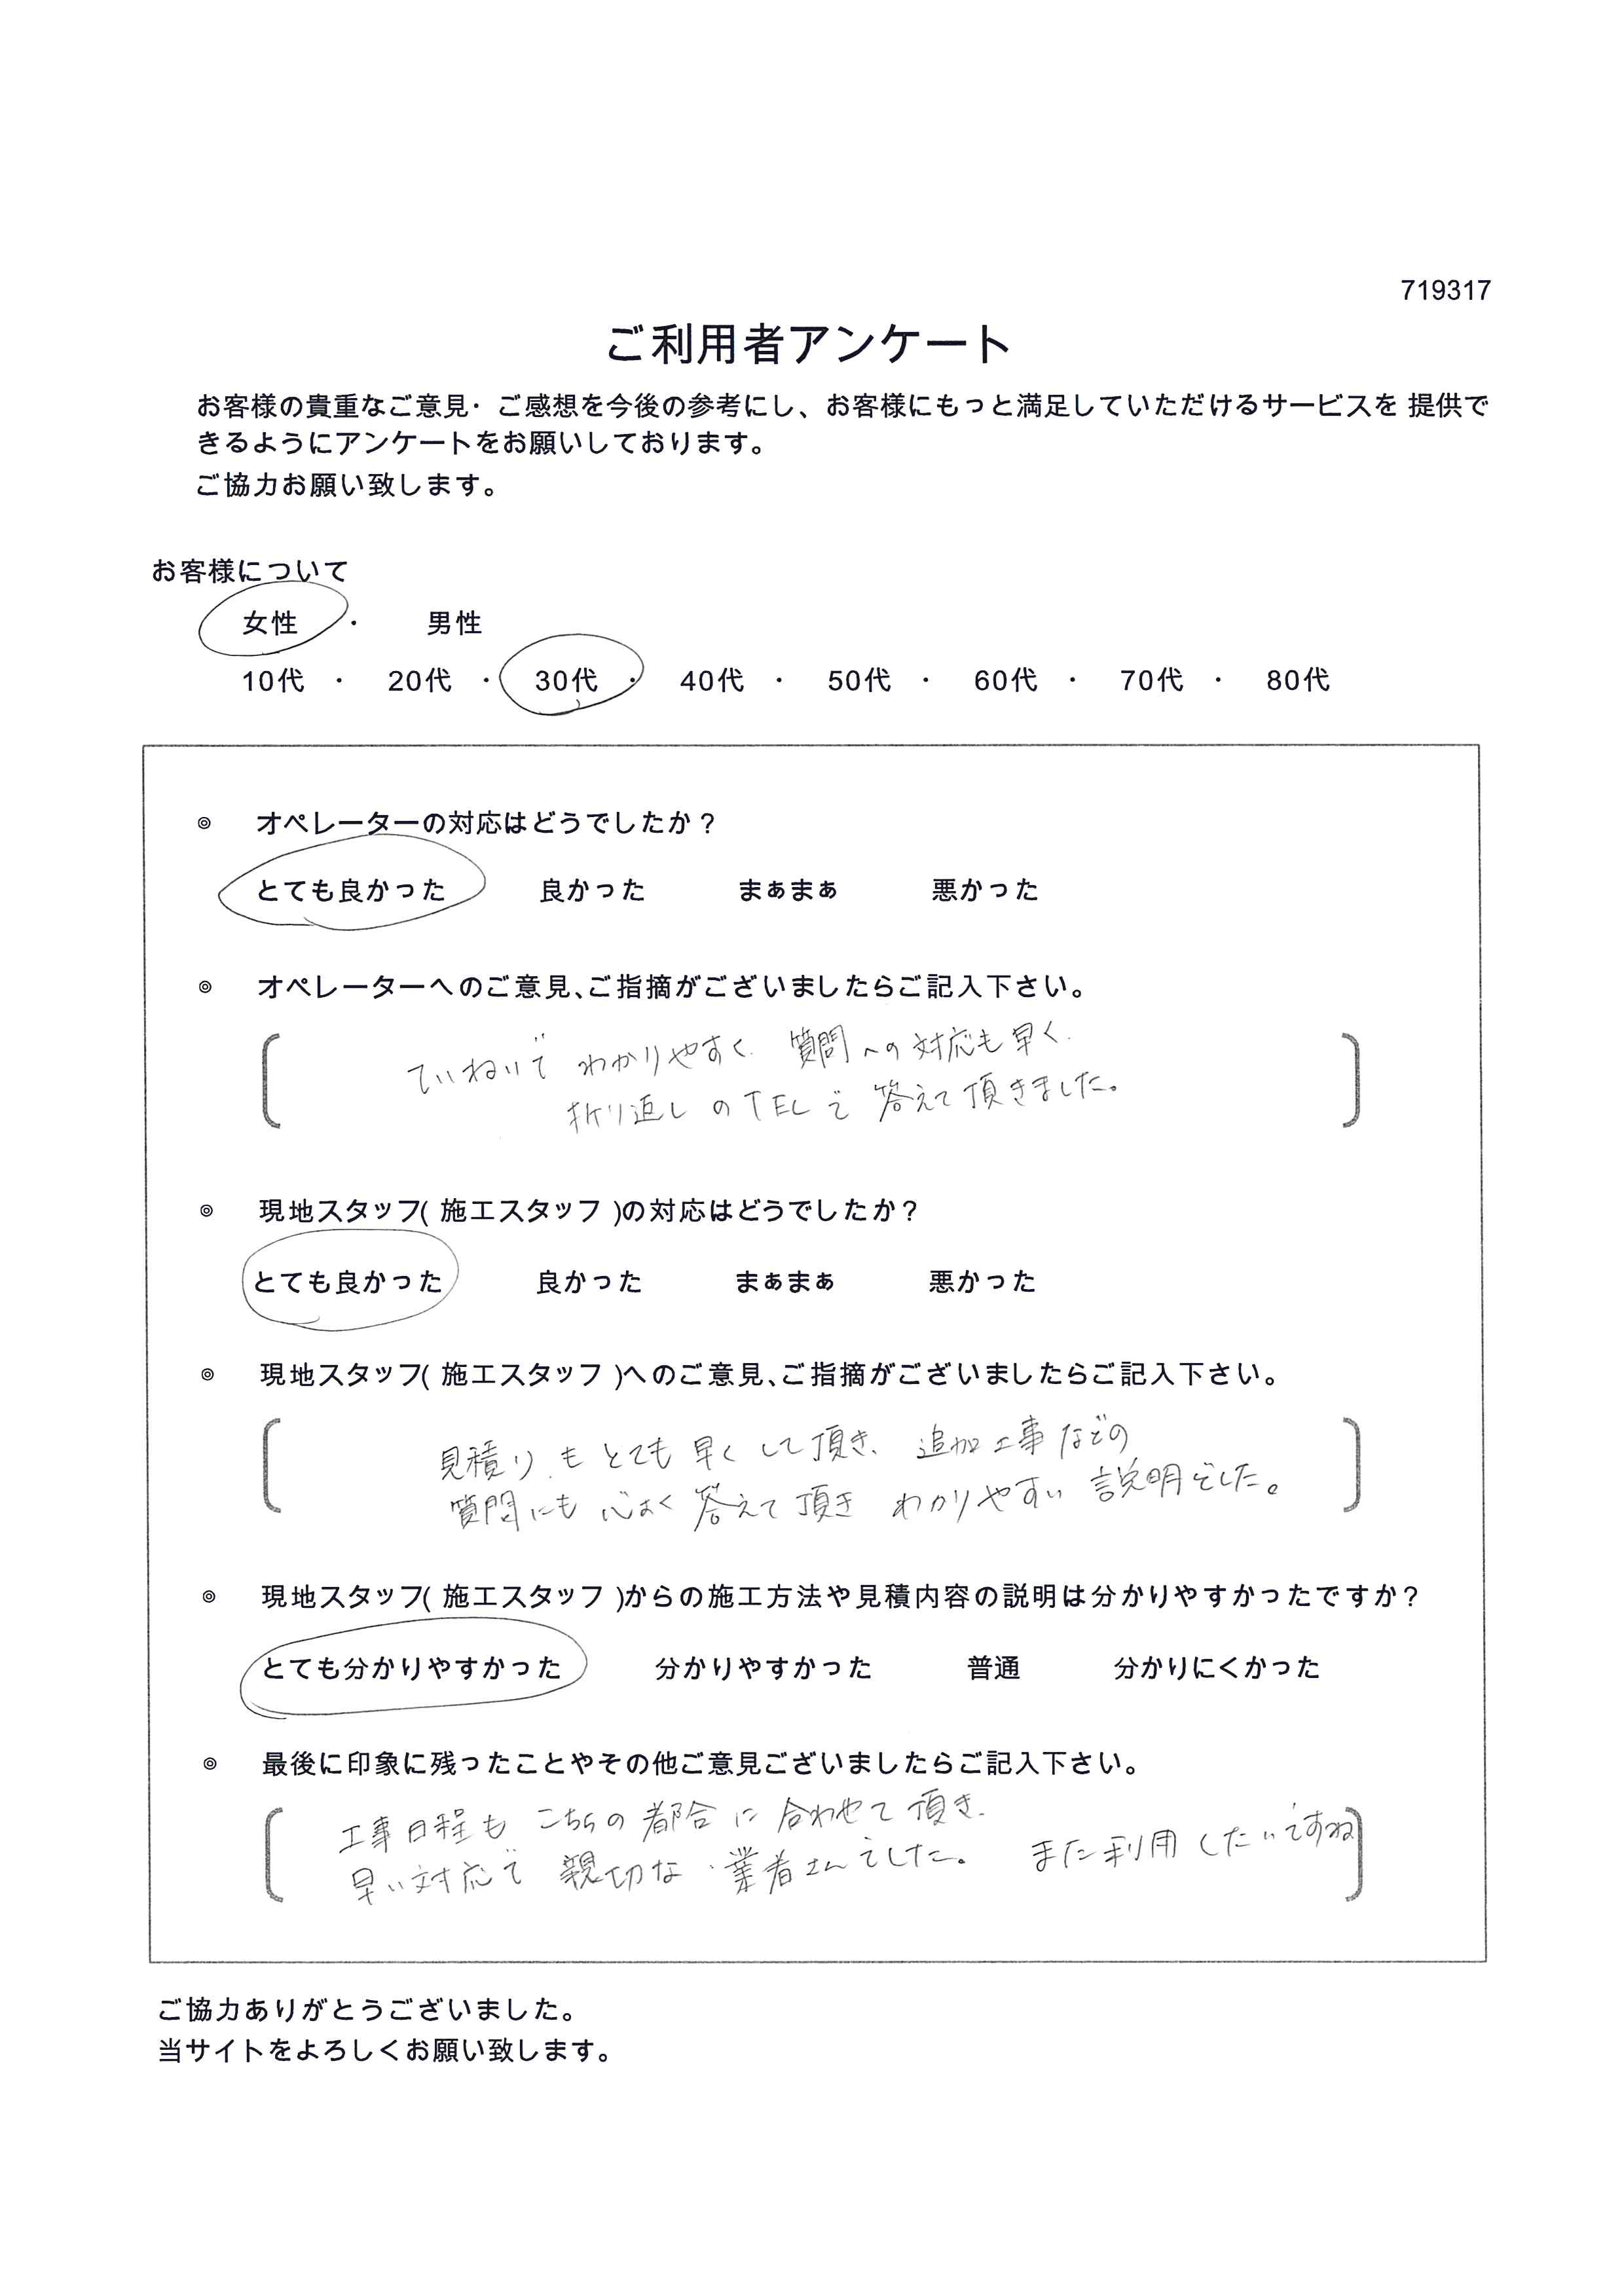 719317
ご利用者アンケート
お客様の貴重なご意見・ご感想を今後の参考にし、お客様にもっと満足していただけるサービスを 提供で
きるようにアンケートをお願いしております。
ご協力お願い致します。
お客様について
女性 ・ 男性
10代 ・ 20代 ・ 30代 ・ 40代 ・ 50代 ・ 60代 ・ 70代 ・ 80代
◎ オペレーターの対応はどうでしたか？
とても良かった 良かった まぁまぁ 悪かった
◎ オペレーターへのご意見、ご指摘がございましたらご記入下さい。
ていねいで わかりやすく、質問への対応も早く、
折り返しのTELで 答えて頂きました。
◎ 現地スタッフ( 施工スタッフ )の対応はどうでしたか？
とても良かった 良かった まぁまぁ 悪かった
◎ 現地スタッフ( 施工スタッフ )へのご意見、ご指摘がございましたらご記入下さい。
見積りもとても早くして頂き、追加工事などの
質問にも 心よく 答えて頂き わかりやすい 説明でした。
◎ 現地スタッフ( 施工スタッフ )からの施工方法や見積内容の説明は分かりやすかったですか？
とても分かりやすかった 分かりやすかった 普通 分かりにくかった
◎ 最後に印象に残ったことやその他ご意見ございましたらご記入下さい。
工事日程も こちらの都合に合わせて頂き、
早い対応で 親切な業者さんでした。 また利用したいですね
ご協力ありがとうございました。
当サイトをよろしくお願い致します。